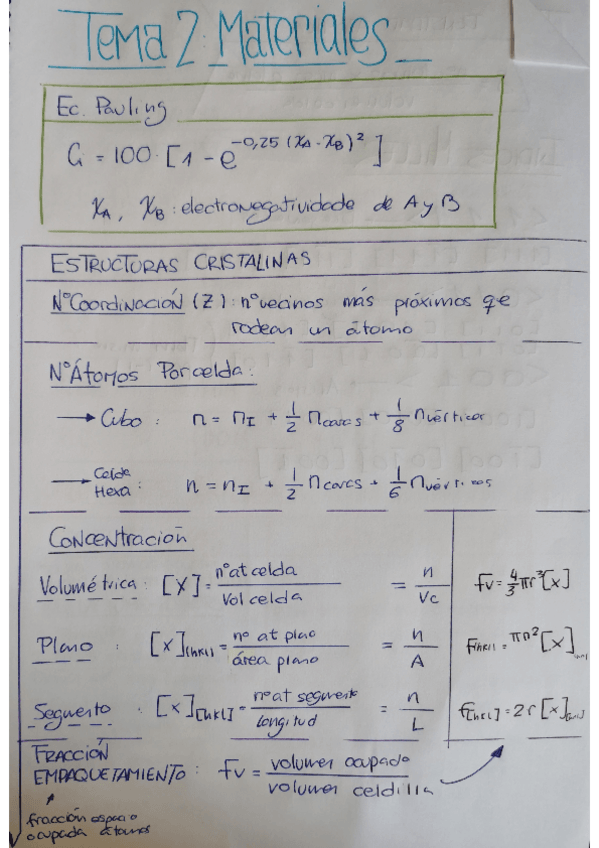 Tema 2: Materiales
Ec. Pauling
G = 100 · [1 - e^{-0,25 (χ_A - χ_B)^2}]
χ_A, χ_B : electronegatividade de A y B
ESTRUCTURAS CRISTALINAS
NºCoordinación (Z) : nº vecinos más próximos que
rodean un átomo
NºÁtomos Por celda :
→ Cubo : n = n_I + 1/2 n caras + 1/8 n vértices
→ Celda Hexa : n = n_I + 1/2 n caras + 1/6 n vértices
Concentración
Volumétrica : [X] = nº at celda / Vol celda = n / Vc
fv = 4/3 πr^3 [x]
Plano : [x]_(hkl) = nº at plano / área plano = n / A
f_(hkl) = πr^2 [x]_(hkl)
Segmento : [x]_[hkl] = nº at segmento / longitud = n / L
f_[hkl] = 2r [x]_[hkl]
FRACCIÓN
EMPAQUETAMIENTO : fv = volumen ocupado / volumen celdilla
fracción espacio
ocupada átomos